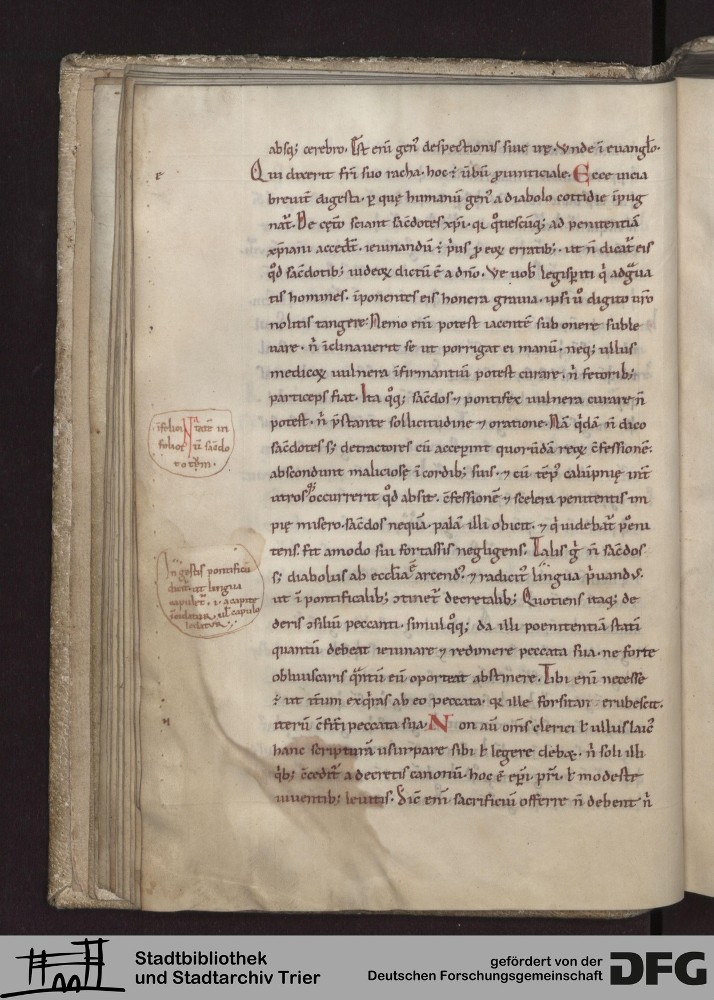 absq; cerebro. Est eni gen' despectionis siue ire. Vnde i euanglo.
Qui dixerit fri suo racha. hoc ÷ puniticiale. Ecce uicia
breuit digesta. p que humanu gen' a diabolo cottidie ipug
nat. De ceto sciant sacdotes xpi. qi ad penitentia
xpiani accedt. ieiunandu ÷ p'us p eoru erratib; ut n dicat eis
qd sacdotib; iudeoru dictu e a dno. Ve uob legispiti q adgua
tis homines. iponentes eis honera grauia. ipsi u digito uro
nolitis tangere. Nemo eni potest iacente sub onere suble
uare. n iclinauerit se ut porrigat ei manu. neq; ullus
medicoru uulnera ifirmantiu potest curare. n fetorib;
particeps fiat. Ita qq; sacdos & pontifex uulnera curare n
potest. n pstante sollicitudine & oratione. Na qda n dico
sacdotes s; detractores cu accepint quoruda reoru cfessione.
abscondunt maliciose i cordib; suis. & cu tep' calupnie
occurrerit qd absit. cfessione & scelera penitentis in
pie misero. sacdos nequa. pala illi obicit. & q uidebat peni
tens. fit amodo sui fortassis negligens. Talis g n sacdos
s; diabolus ab ecclia arcend'. & radicit' lingua puand'.
ut i pontificalib; otinet decretalib; Quotiens itaq; de
deris osiliu peccanti. simul qq; da illi poenitentia stati
quantu debeat ieiunare & redimere peccata sua. ne forte
obliuiscaris qntu eu oporteat abstinere. Tibi eni necesse
÷ ut itum exqras ab eo peccata. qi ille forsitan erubescit.
iteru cfiti peccata sua. Non au oms clerici l ullus laic'
hanc scriptura usurpare sibi l legere debet. n soli illi
qb; ccedit a decretis canonu. hoc e epi. pri. l modeste
uiuentib; leuitis. Sic eni sacrificiu offerre n debent n
In gestis pontificu
dicit. ut lingua
capulet. i. a capite
ledatur.
Stadtbibliothek
und Stadtarchiv Trier
gefördert von der
Deutschen Forschungsgemeinschaft
DFG